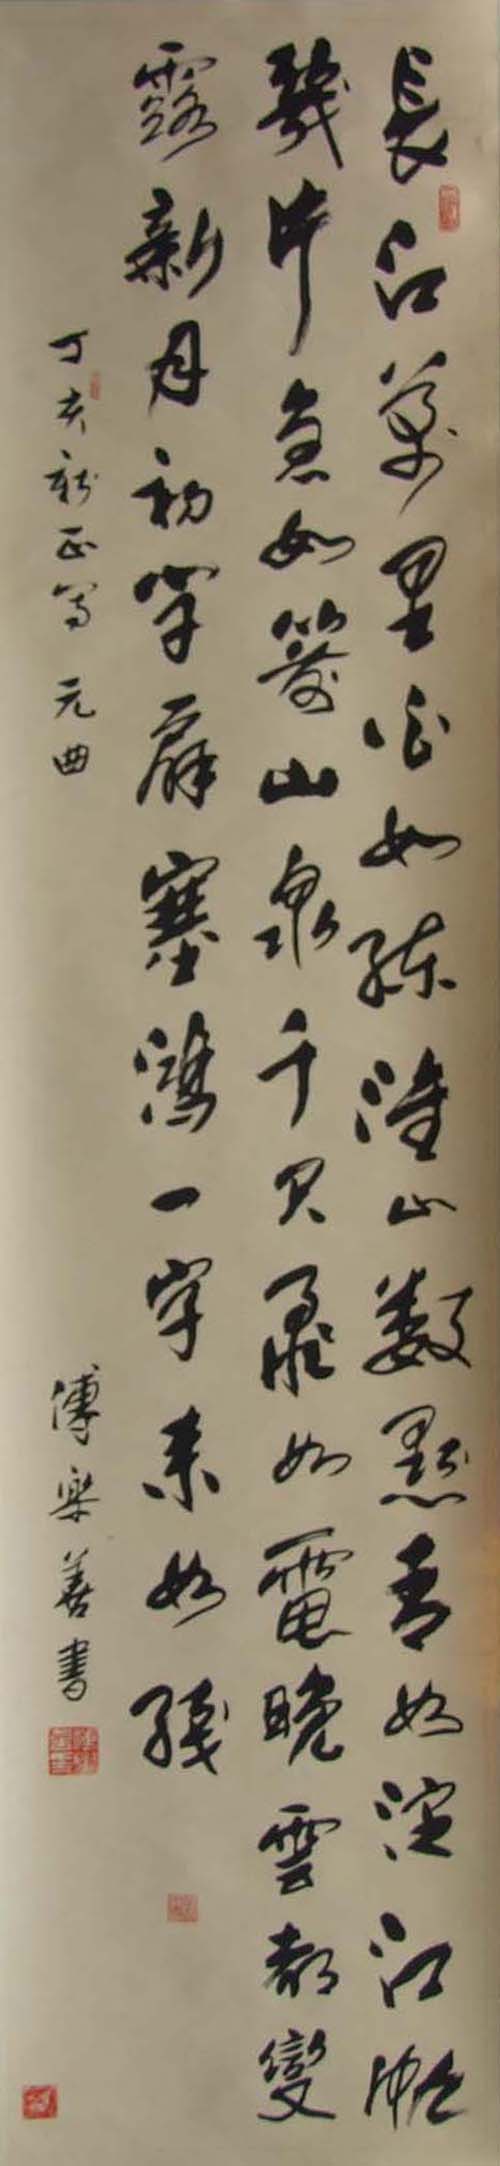 長江萬里白如練淮山數點青如淀江帆
幾片急如箭山泉千尺飛如電晚雲都變
露新月初學扇塞鴻一字來如綫
丁亥新正寫元曲
傅樂善書